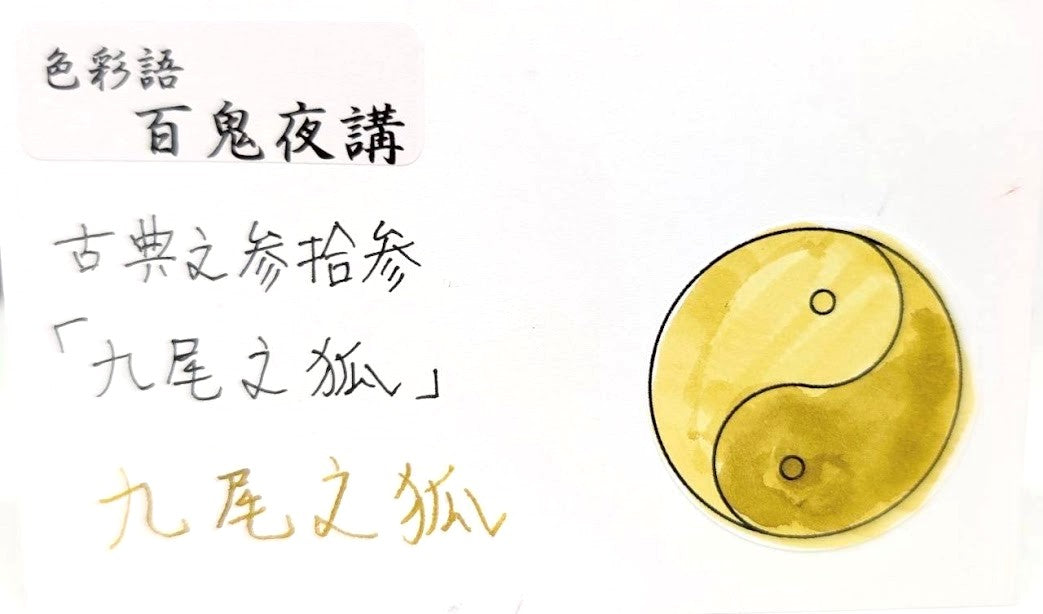 色彩語
百鬼夜講
古典文参拾参
「九尾之狐」
九尾之狐